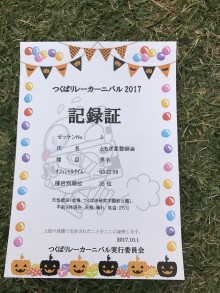 つくばリレーカーニバル 2017
記録証
ゼッケンNo. 3
氏 名
種 目 男子
オフィシャルタイム 03:22:59
種目別順位 位
上記の成績で完走されたことをここに証明します。
2017.10.1
つくばリレーカーニバル実行委員会